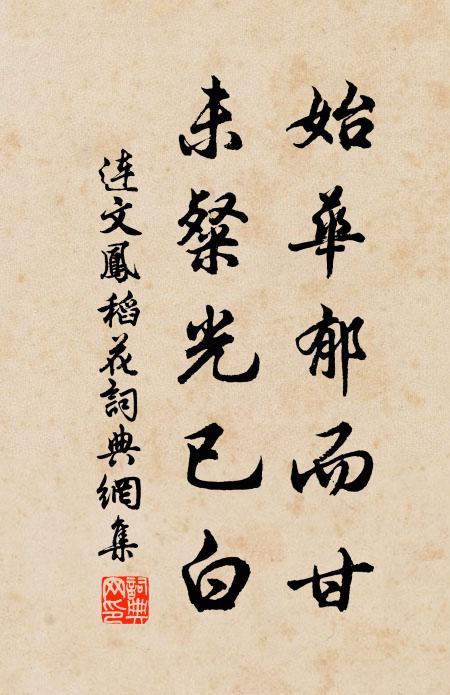 始華郁而甘
未粲光已白
連文鳳稻花詞典網集
詞典網印